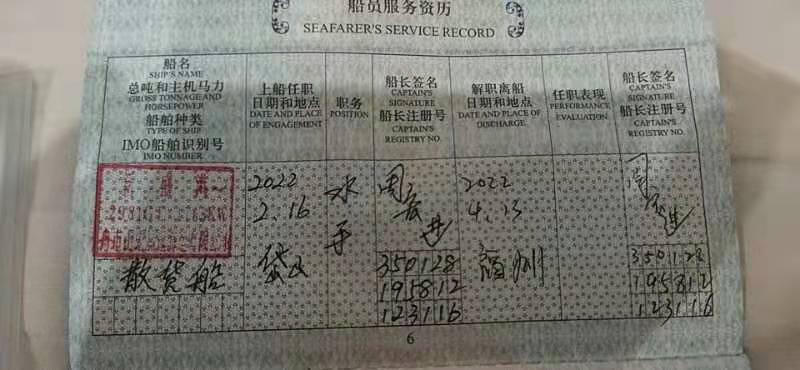 船员服务资历
SEAFARER'S SERVICE RECORD
船名
SHIP'S NAME
总吨和主机马力
GROSS TONNAGE AND
HORSEPOWER
船舶种类
TYPE OF SHIP
IMO船舶识别号
IMO NUMBER
上船任职
日期和地点
DATE AND PLACE
OF ENGAGEMENT
职务
POSITION
船长签名
CAPTAIN'S
SIGNATURE
船长注册号
CAPTAIN'S
REGISTRY NO.
解职离船
日期和地点
DATE AND PLACE OF
DISCHARGE.
任职表现
PERFORMANCE
EVALUATION
船长签名
CAPTAIN'S
SIGNATURE
船长注册号
CAPTAIN'S
REGISTRY NO.
散货船
2022
2.16
水
手
周
进
350128
195812
123116
2022
4.13
福州
周
进
350128
195812
123116
6